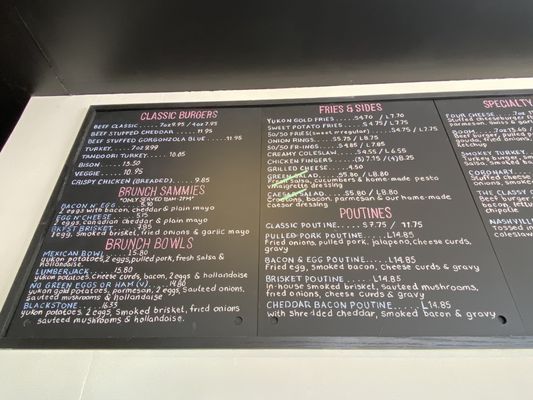 CLASSIC BURGERS
BEEF CLASSIC ..... 7oz 9.95 / 4oz 7.95
BEEF STUFFED CHEDDAR ..... 11.95
BEEF STUFFED GORGONZOLA BLUE ..... 11.95
TURKEY ..... 7oz 9.99
TANDOORI TURKEY ..... 10.85
BISON ..... 13.50
VEGGIE ..... 10.95
CRISPY CHICKEN (BREADED) .... 9.85
BRUNCH SAMMIES
*ONLY SERVED 11AM-2PM*
BACON N' EGG
2 eggs with bacon, cheddar & plain mayo
EGG N' CHEESE
2 eggs, canadian cheddar & plain mayo
BKFST BRISKET
2 egg, smoked brisket, fried onions & garlic mayo
BRUNCH BOWLS
MEXICAN BOWL ..... 15.80
yukon potatoes, 2 eggs, pulled pork, fresh salsa &
hollandaise.
LUMBERJACK ..... 15.80
yukon potatoes, cheese curds, bacon, 2 eggs & hollandaise
NO GREEN EGGS OR HAM (V) .....
yukon gold potatoes, parmesan, 2 eggs, sauteed onions,
sauteed mushrooms & hollandaise
BLACKSTONE .....
yukon potatoes, 2 eggs, smoked brisket, fried onions
sauteed mushrooms & hollandaise.
FRIES & SIDES
YUKON GOLD FRIES ..... S4.70 / L7.70
SWEET POTATO FRIES ..... S4.75 / L7.75
50/50 FRIES (sweet n' regular) ..... S4.75 / L7.75
ONION RINGS ..... S5.75 / L8.75
50/50 FR-INGS ..... S4.85 / L7.85
CREAMY COLESLAW ..... S4.54 / L6.55
CHICKEN FINGERS ..... (3) 7.15 / (4) 8.25
GRILLED CHEESE ..... 4.50
GREEN SALAD ..... S5.80 / L8.80
Fresh salsa, cucumbers & home-made pesto
vinaigrette dressing
CAESAR SALAD ..... S5.80 / L8.80
Croutons, bacon, parmesan & our home-made
caesar dressing
POUTINES
CLASSIC POUTINE ..... S7.75 / 11.75
PULLED PORK POUTINE ..... L14.85
Fried onions, pulled pork, jalapeno, cheese curds,
gravy
BACON & EGG POUTINE ..... L14.85
Fried egg, smoked bacon, cheese curds & gravy
BRISKET POUTINE ..... L14.85
In-house smoked brisket, sauteed mushrooms,
fried onions, cheese curds & gravy
CHEDDAR BACON POUTINE ..... L14.85
with shredded cheddar, smoked bacon & gravy
SPECIALTY
FOUR CHEESE
Stuffed cheeseburger
parmesan, swiss
BOOM ..... 7oz 13.40
Beef burger, pulled
gouda, fried onions,
ketchup
SMOKEY TURKEY
Turkey burger, smo
smoked bacon,
CORONARY
Cheese stuffed
cheese, onions,
THE CLASSY
Beef burger stuffed
bacon, lettuce,
chipotle
NASHVILLE
Tossed in
coleslaw